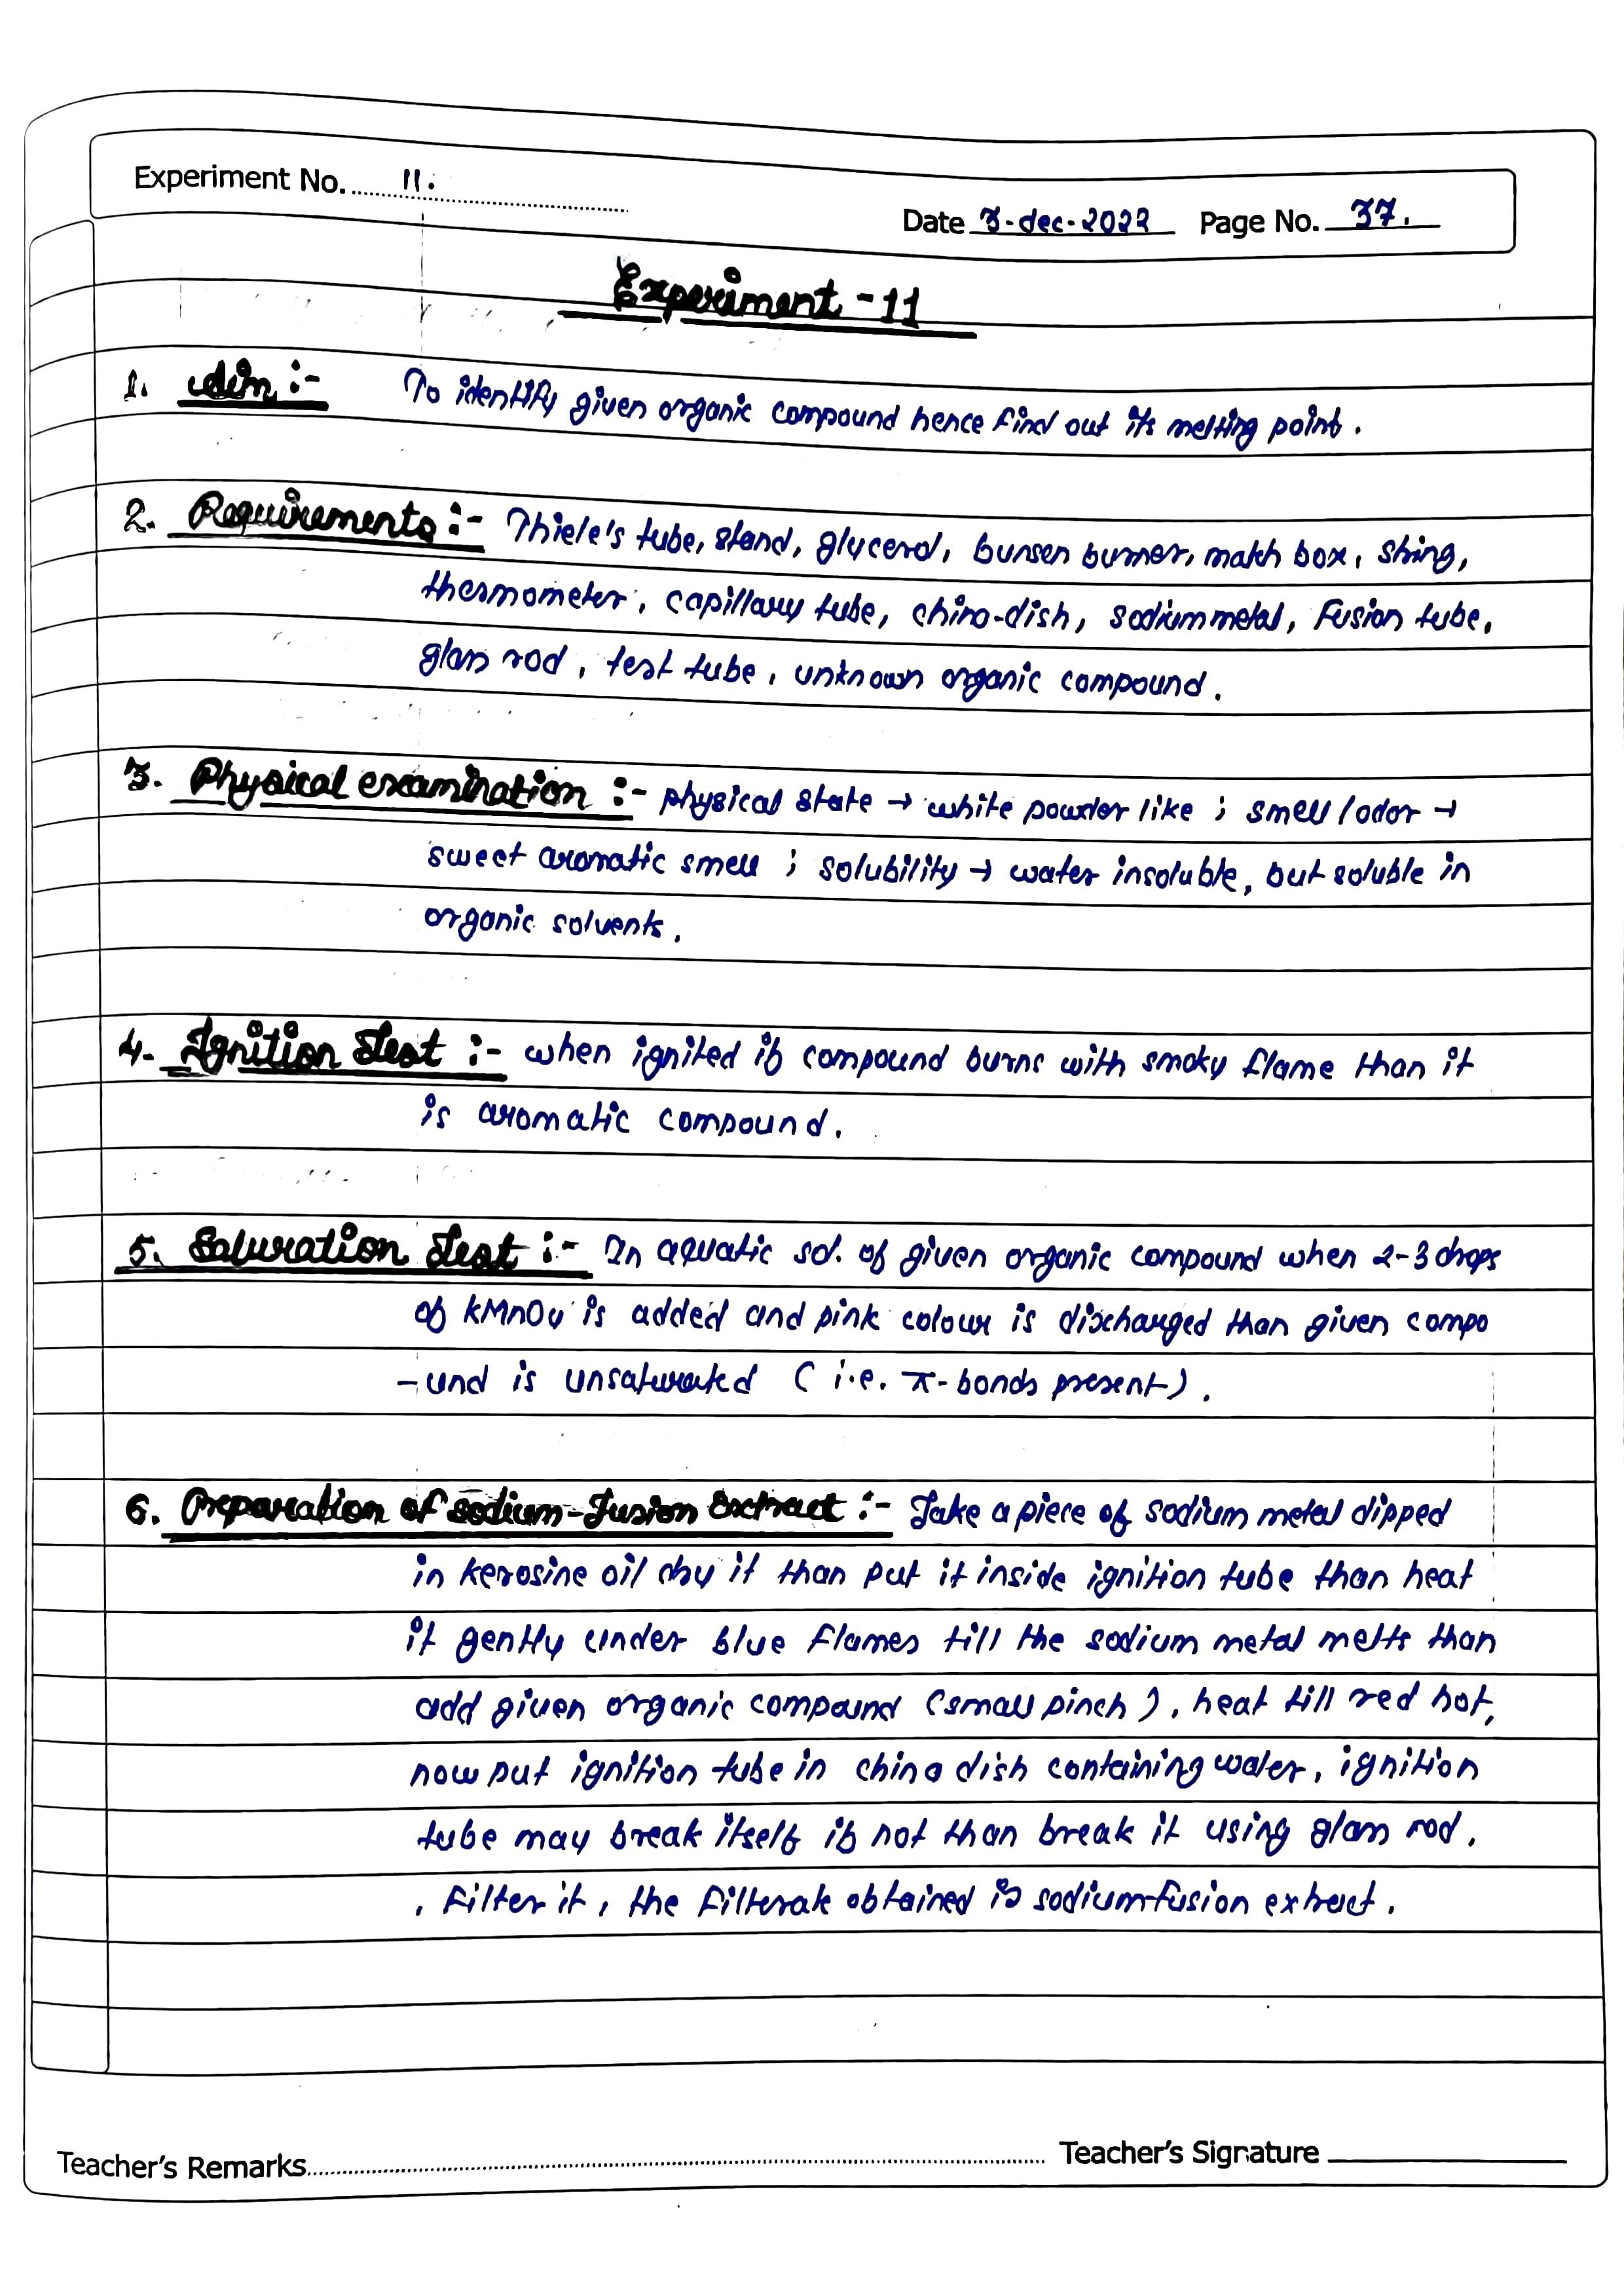 Experiment No. 11.
Date 3-dec-2022 Page No. 37.
Experiment -11
1. Aim :- To identify given organic compound hence find out its melting point.
2. Requirements :- Thiele's tube, stand, glycerol, bunsen burner, match box, string,
thermometer, capillary tube, china-dish, sodium metal, Fusion tube,
glass rod, test tube, unknown organic compound.
3. Physical examination :- physical state → white powder like ; smell / odor →
sweet aromatic smell ; solubility → water insoluble, but soluble in
organic solvents.
4. Ignition Test :- when ignited if compound burns with smoky flame than it
is aromatic compound.
5. Saturation Test :- In aquatic sol. of given organic compound when 2-3 drops
of KMnO4 is added and pink colour is discharged than given compo
-und is unsaturated ( i.e. π-bonds present ).
6. Preparation of sodium-Fusion Extract :- Take a piece of sodium metal dipped
in kerosine oil dry it than put it inside ignition tube than heat
it gently under blue flames till the sodium metal melts than
add given organic compound (small pinch), heat till red hot,
now put ignition tube in china dish containing water, ignition
tube may break itself if not than break it using glass rod.
. Filter it, the filterate obtained is sodium-fusion extract.
Teacher's Remarks Teacher's Signature